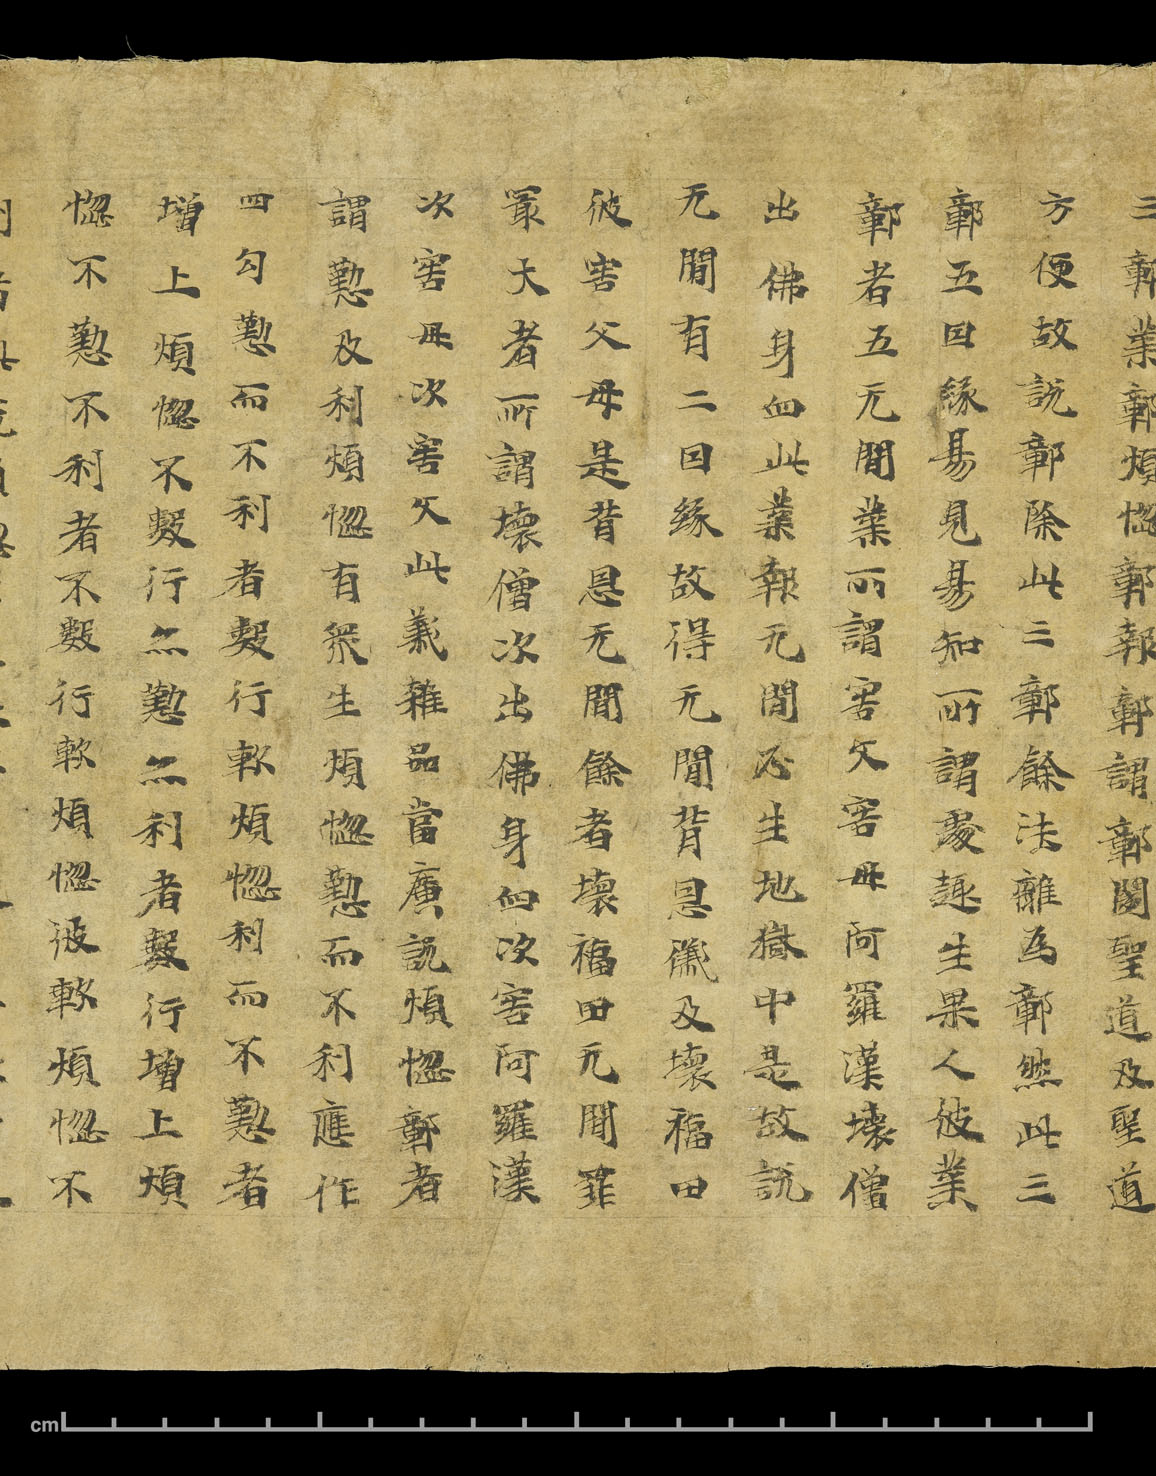 三鄣業鄣煩惱鄣報鄣謂鄣閡聖道及聖道
方便故說鄣除此三鄣餘法離為鄣然此三
鄣五因緣易見易知所謂處趣生果人彼業
鄣者五无間業所謂害父害母阿羅漢壞僧
出佛身血此業報无間必生地獄中是故說
无間有二因緣故得无間背恩養及壞福田
彼害父母是背恩无間餘者壞福田无間罪
最大者所謂壞僧次出佛身血次害阿羅漢
次害母次害父此義雜品當廣說煩惱鄣者
謂懃及利煩惱有衆生煩惱懃而不利應作
四句懃而不利者數行軟煩惱利而不懃者
增上煩惱不數行亦懃亦利者數行增上煩
惱不懃不利者不數行軟煩惱彼軟煩惱不